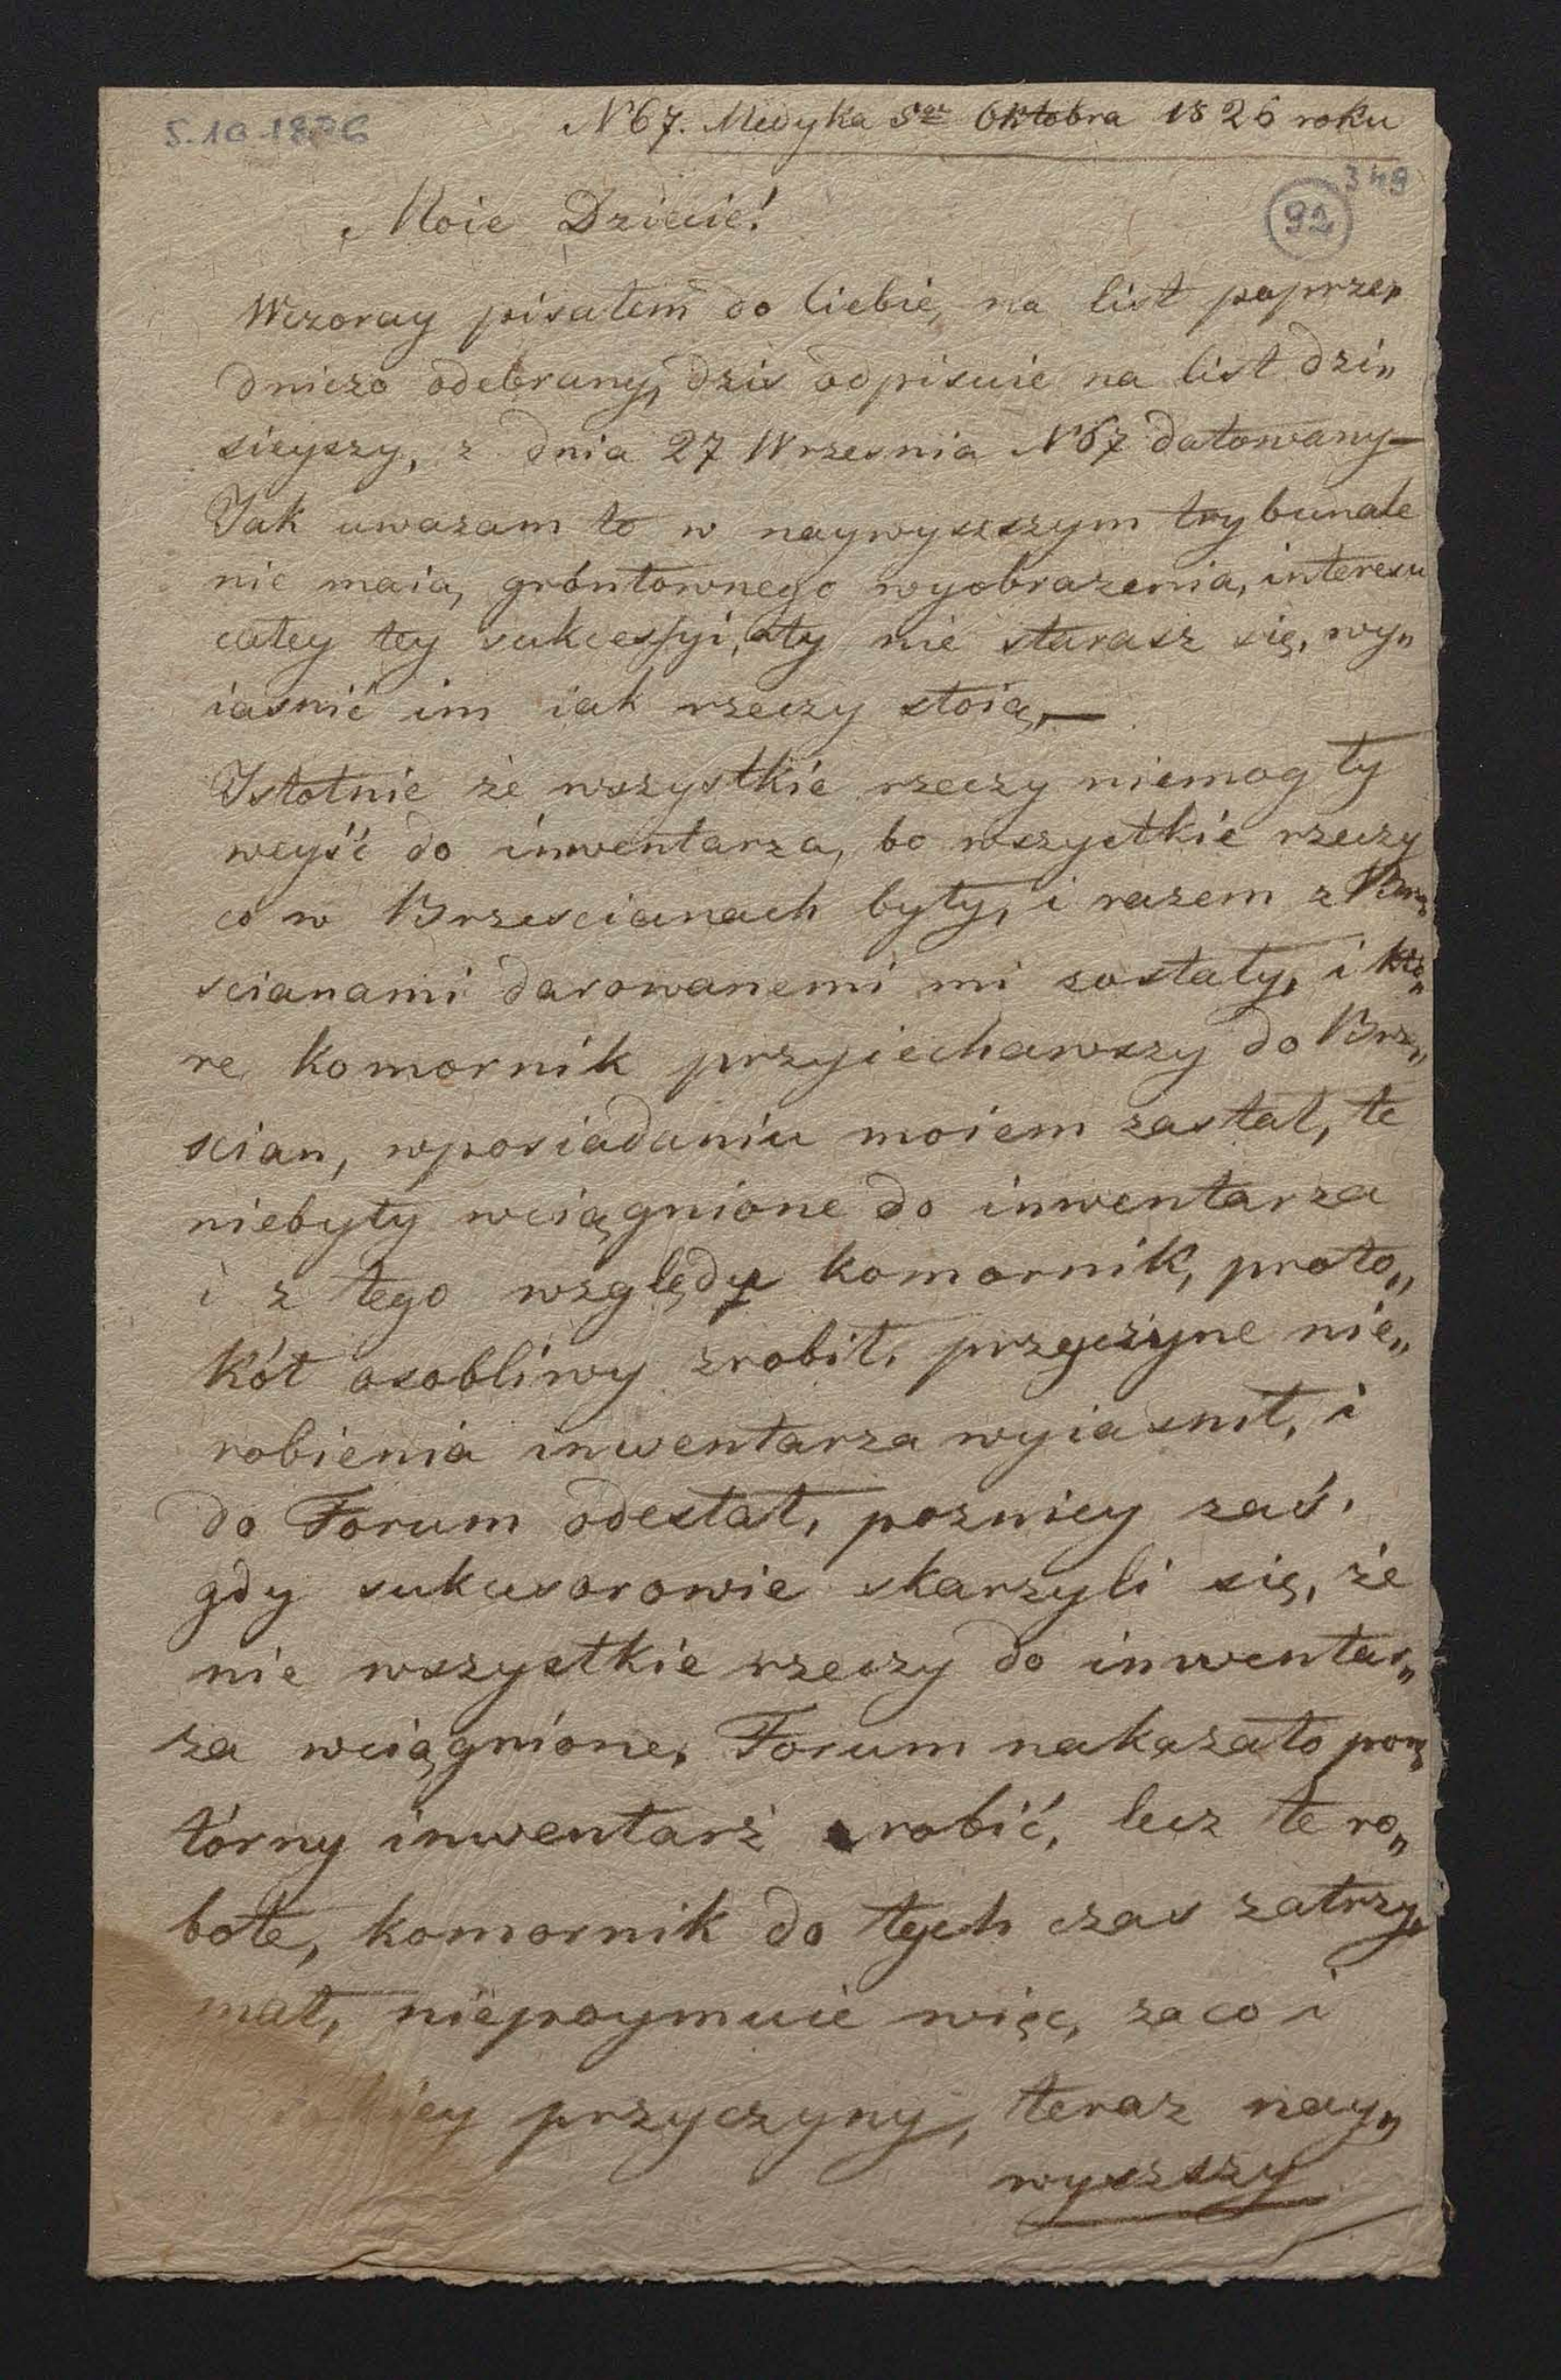 5.10.1826
N° 67. Medyka 5go Oktobra 1826 roku
349
92
Moie Dziecie!
Wczoray pisałem do Ciebie, na list poprze„
dniczo odebrany, dzis odpisuie na list dzi„
sieyszy, z dnia 27 Wrzesnia N° 67 datowany—
Jak uwazam to w naywyszszym trybunale
nie maią, gróntownego wyobrazenia, interesu
całey tey sukcessyi, a ty nie starasz się, wy„
iasnić im iak rzeczy stoią,—
Istotnie że wszystkie rzeczy niemogły
weyść do inwentarza, bo wszystkie rzeczy
co w Brzescianach były, i razem z Brze„
scianami darowanemi mi zostały, i któ„
re komornik przyiechawszy do Brze„
scian, wposiadaniu moiem zastał, te
niebyły wciągnione do inwentarza
i z tego względu komornik, proto„
kół osobliwy zrobił, przyczyne nie„
robienia inwentarza wyiasnił, i
do Forum odesłał, pozniey zaś,
gdy sukcesorowie skarzyli się, że
nie wszystkie rzeczy do inwentar„
za wciągnione, Forum nakazało pow„
tórny inwentarż robić, lecz te ro„
bote, komornik do tych czas zatrzy„
mał, niepoymuie więc, za co i
przyczyny, teraz nay„
wyszszy